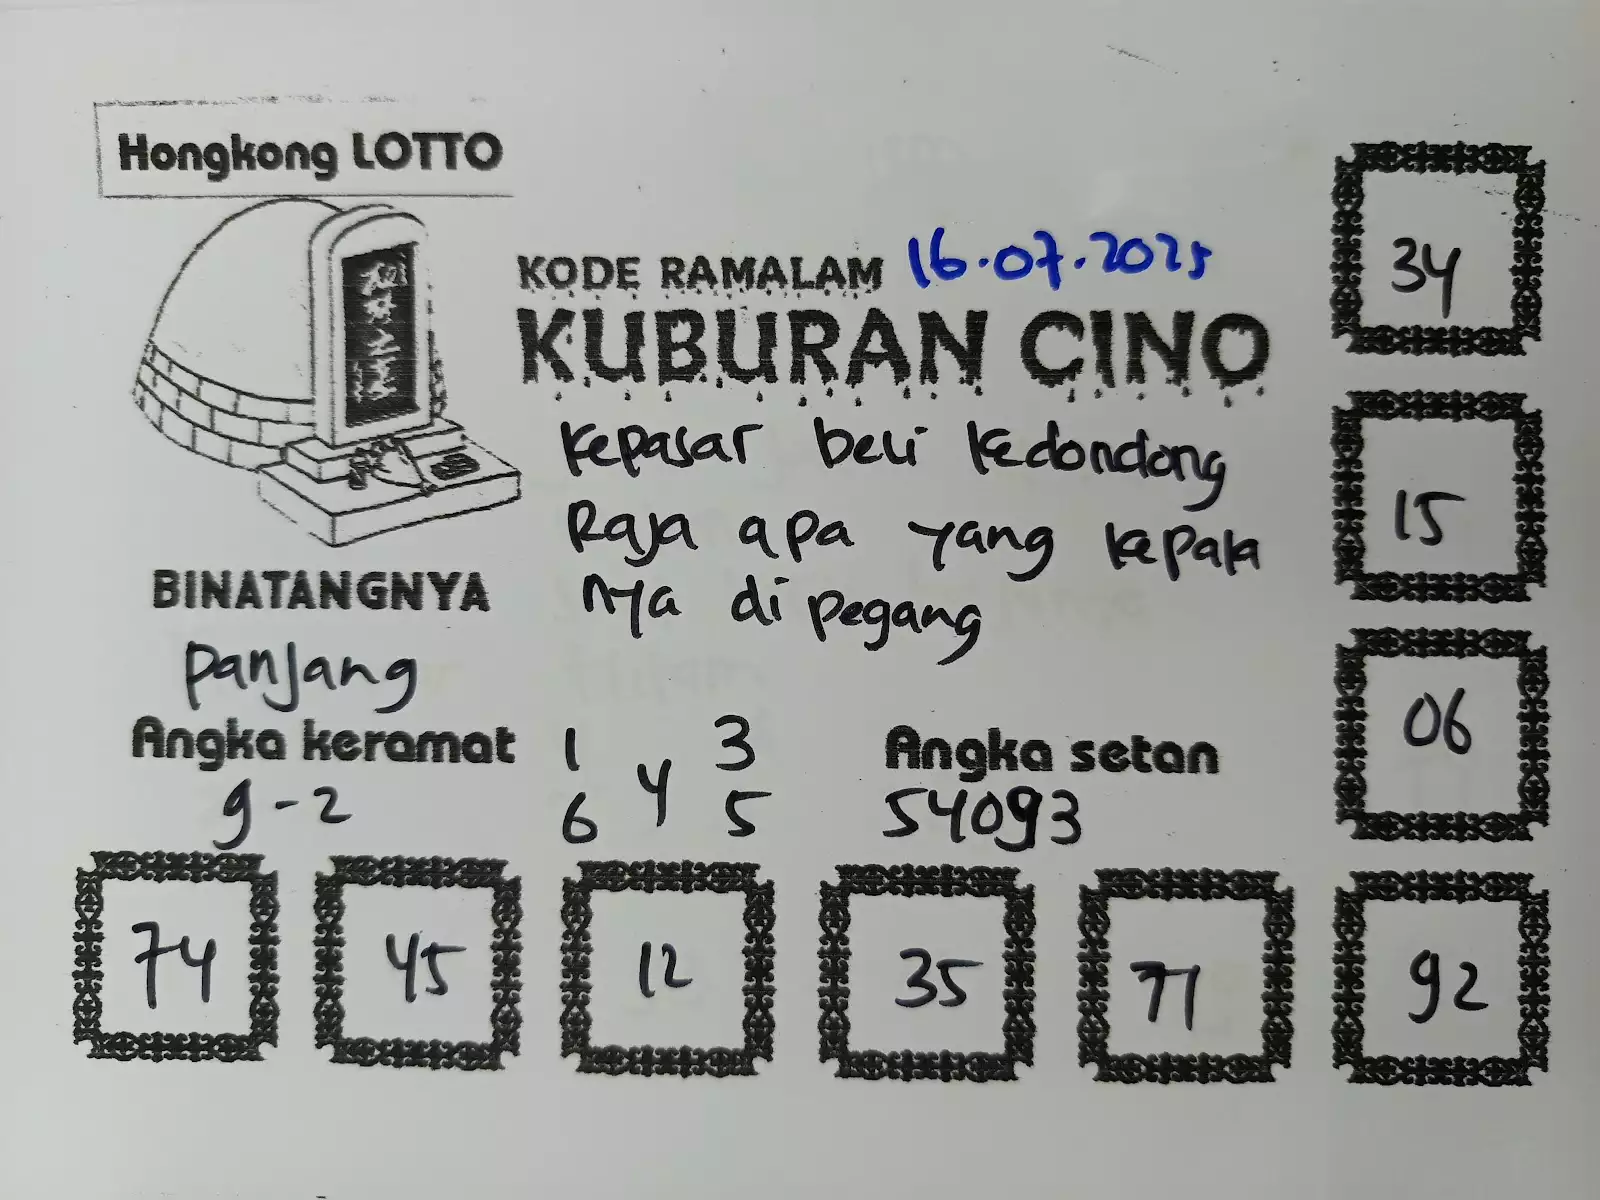 Hongkong LOTTO
KODE RAMALAM 16.07.2025
KUBURAN CINO
Kepasar beli kedondong
Raja apa yang kepala
nya di pegang
BINATANGNYA
Panjang
Angka keramat
9-2
1 3
4
6 5
Angka setan
54093
34
15
06
74 45 12 35 77 92